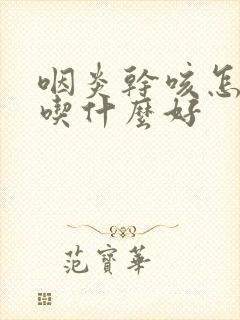 咽炎幹咳怎
喫什麼好
范寶華